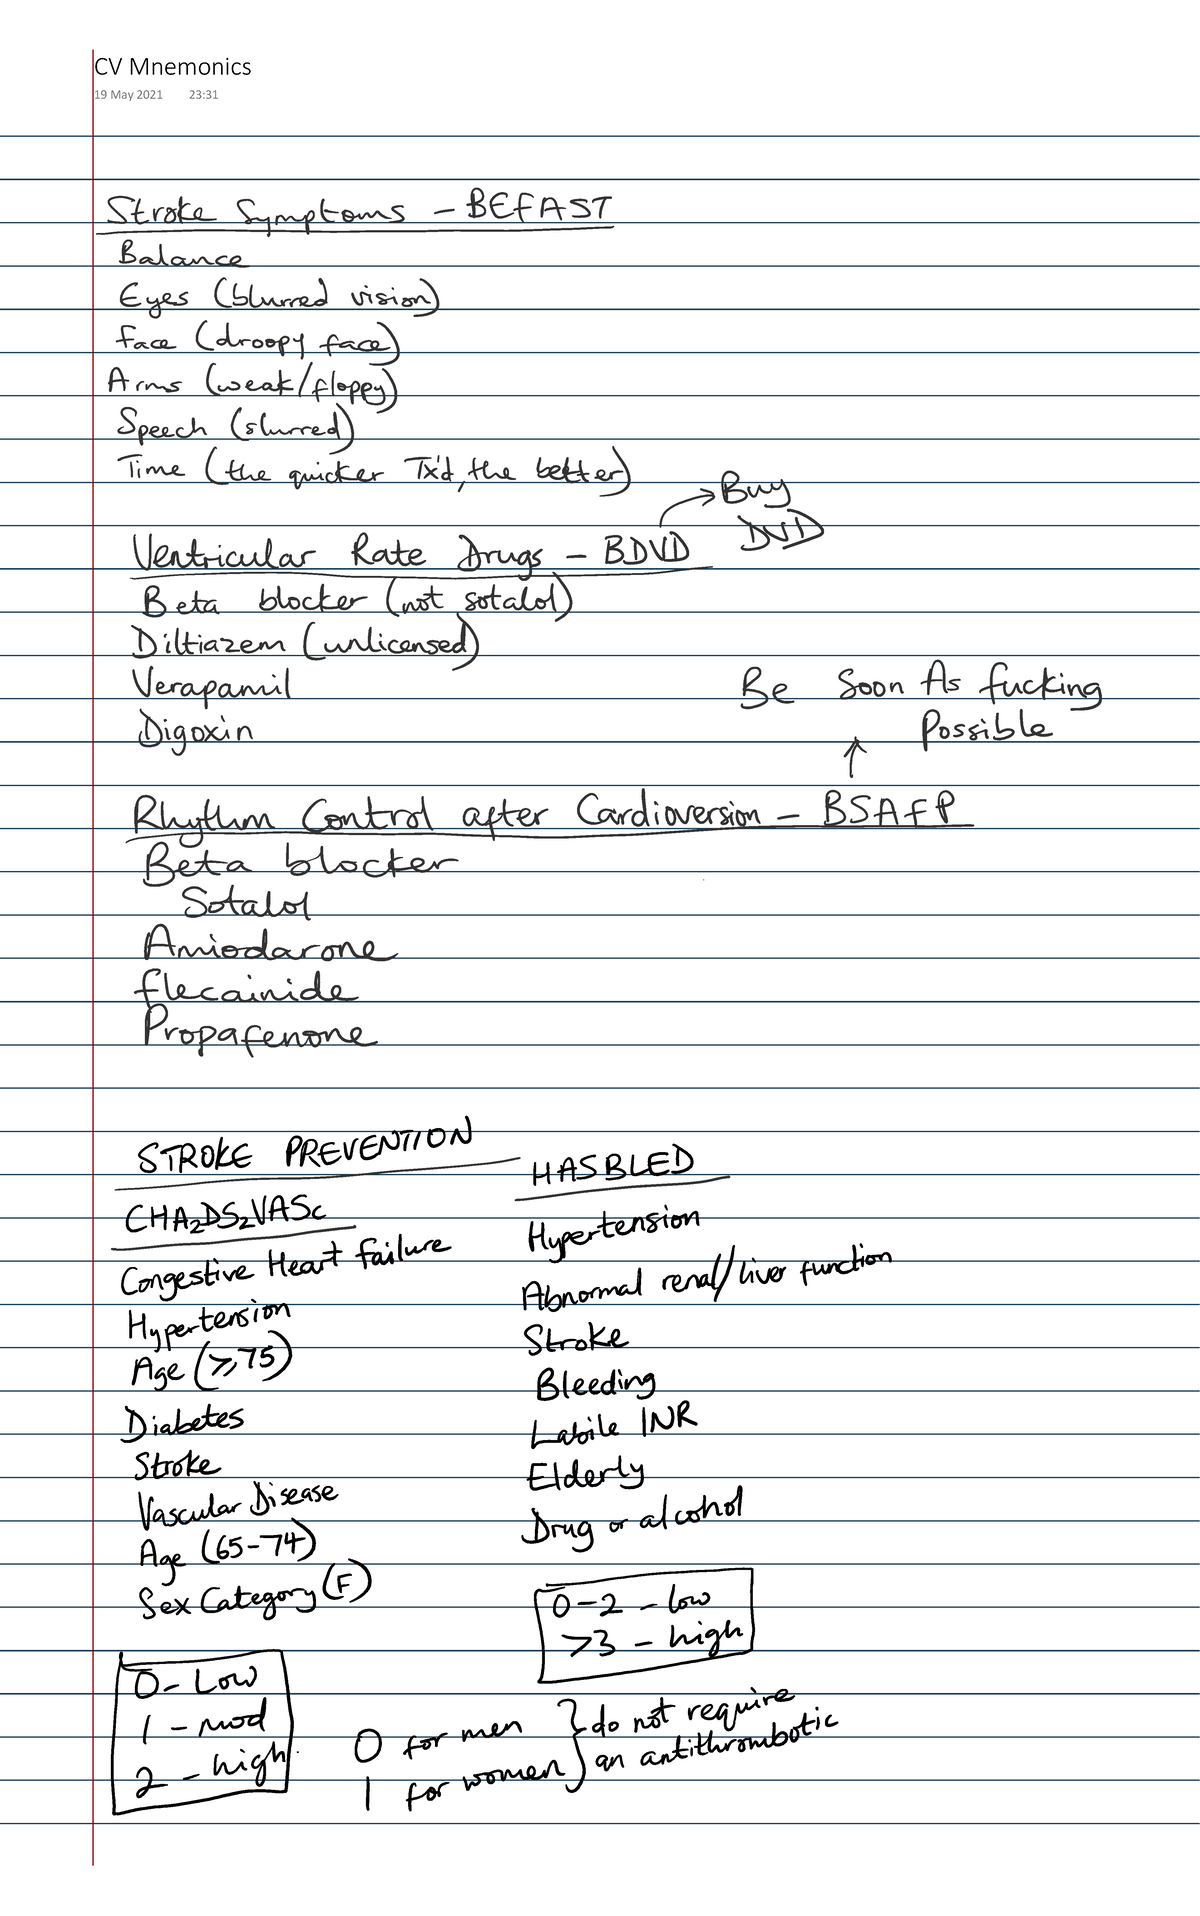 CV Mnemonics
19 May 2021 23:31
Stroke Symptoms - BEFAST
Balance
Eyes (blurred vision)
Face (droopy face)
Arms (weak/floppy)
Speech (slurred)
Time (the quicker Tx'd, the better)
Buy
DVD
Ventricular Rate Drugs - BDVD
Beta blocker (not sotalol)
Diltiazem (unlicensed)
Verapamil
Digoxin
Be Soon As fucking
Possible
Rhythm Control after Cardioversion - BSAFP
Beta blocker
Sotalol
Amiodarone
flecainide
Propafenone
STROKE PREVENTION
CHA₂DS₂VASc
Congestive Heart Failure
Hypertension
Age (≥75)
Diabetes
Stroke
Vascular Disease
Age (65-74)
Sex Category (F)
0 - Low
1 - mod
2 - high
HASBLED
Hypertension
Abnormal renal/liver function
Stroke
Bleeding
Labile INR
Elderly
Drug or alcohol
0-2 - low
>3 - high
0 for men } do not require
1 for women } an antithrombotic